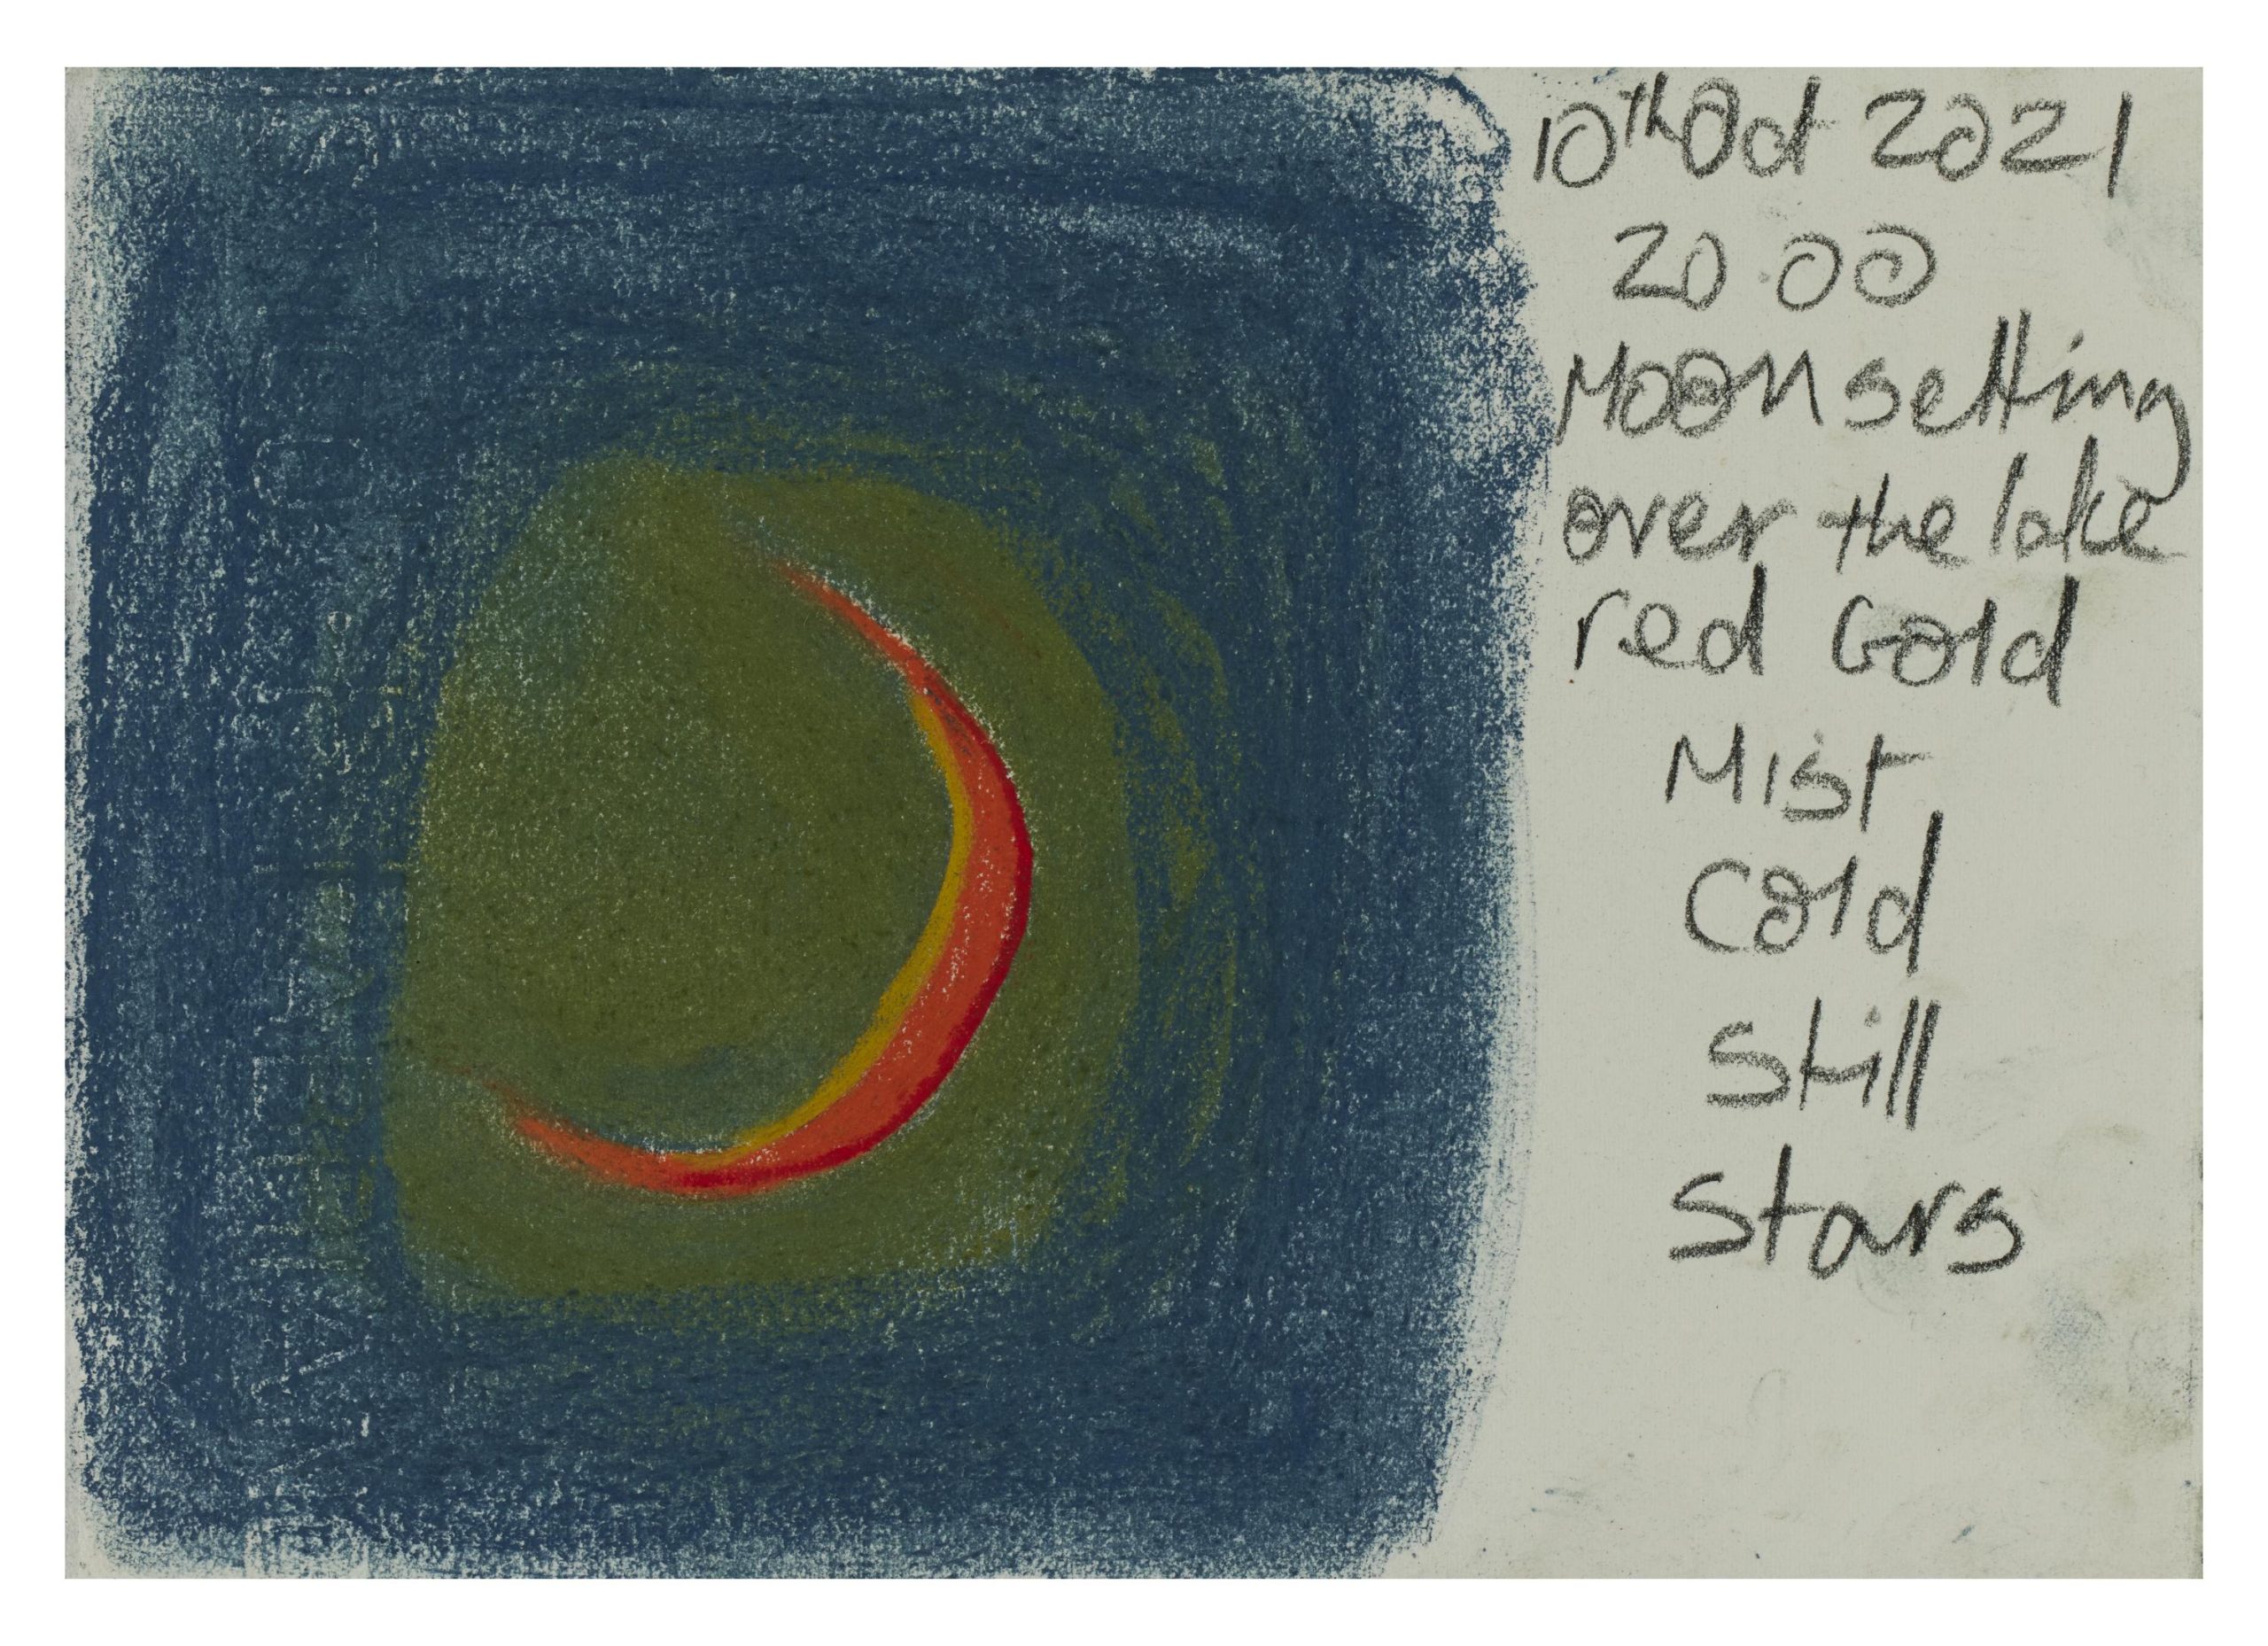 10th Oct 2021
20 00
Moon setting
over the lake
red Gold
Mist
Cold
Still
Stars